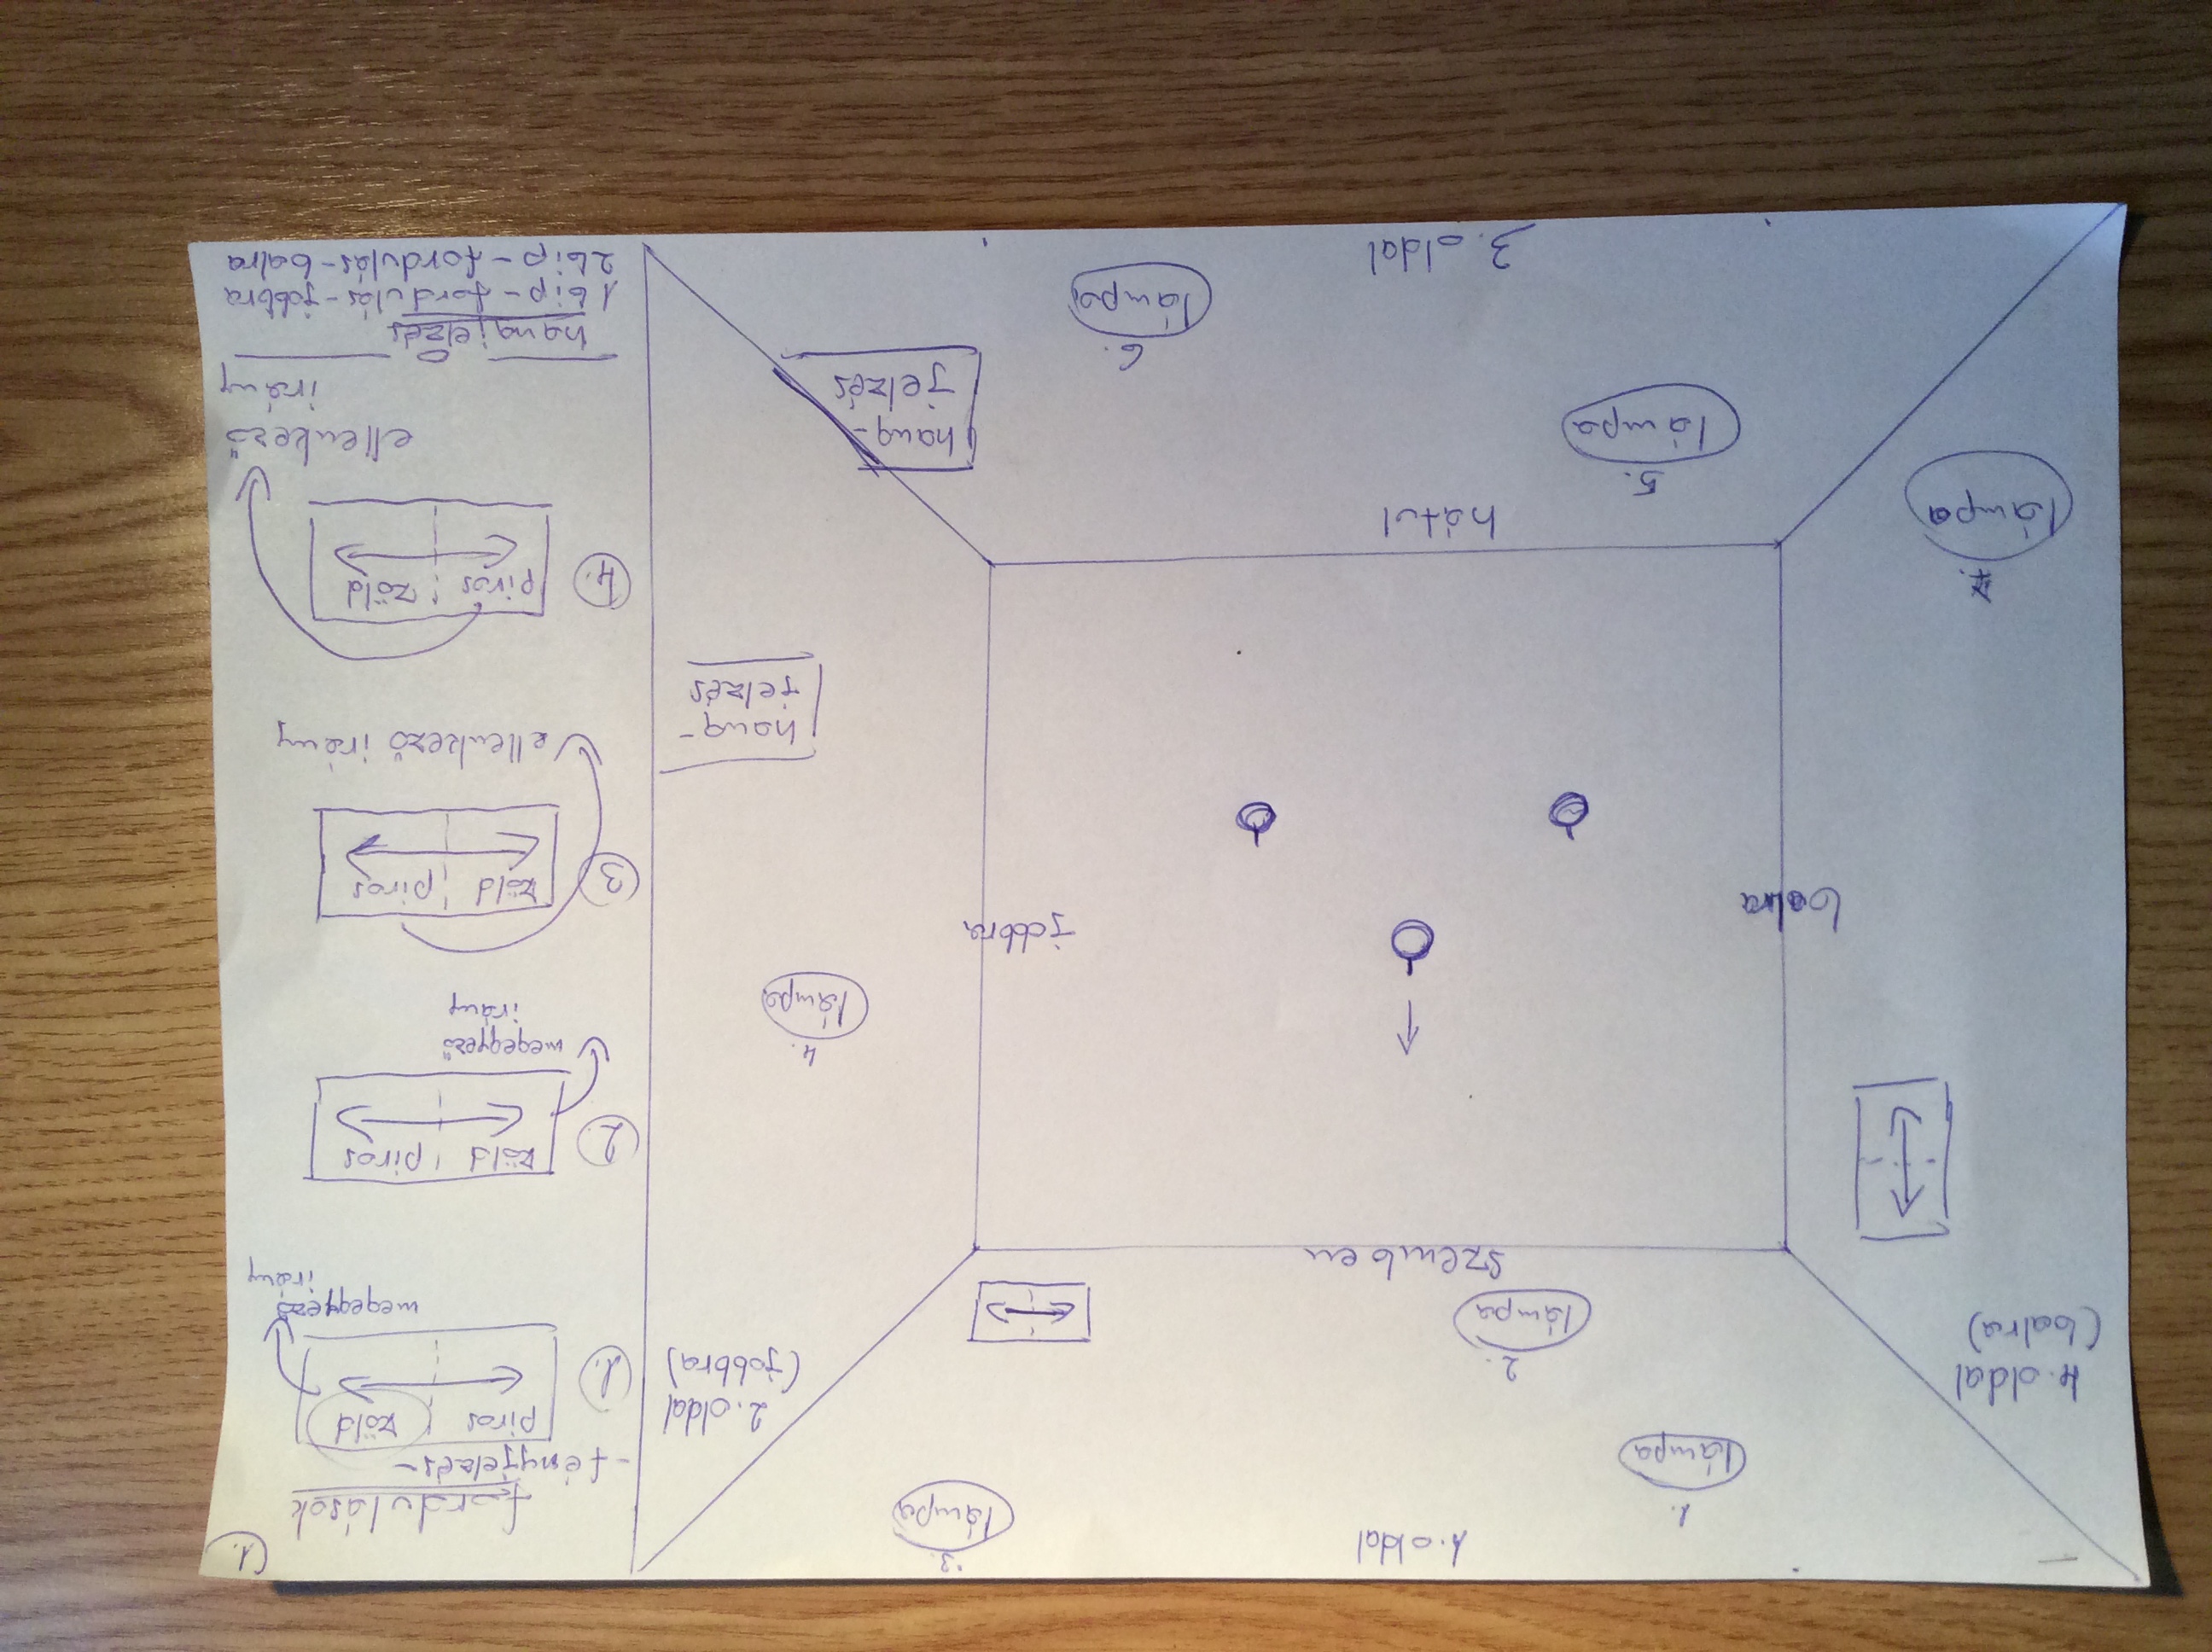 1. oldal
1.
lámpa
2.
lámpa
3.
lámpa
4. oldal
(balra)
2. oldal
(jobbra)
szemben
balra
jobbra
4.
lámpa
hang-
jelzés
7.
lámpa
hátul
5.
lámpa
hang-
jelzés
6.
lámpa
3. oldal
1.
fordulások
-fényjelzés-
1.
piros zöld
megegyező
irány
2.
zöld piros
megegyező
irány
3
zöld piros
ellenkező irány
4.
piros zöld
ellenkező
irány
hangjelzés
1 bip - fordulás - jobbra
2 bip - fordulás - balra